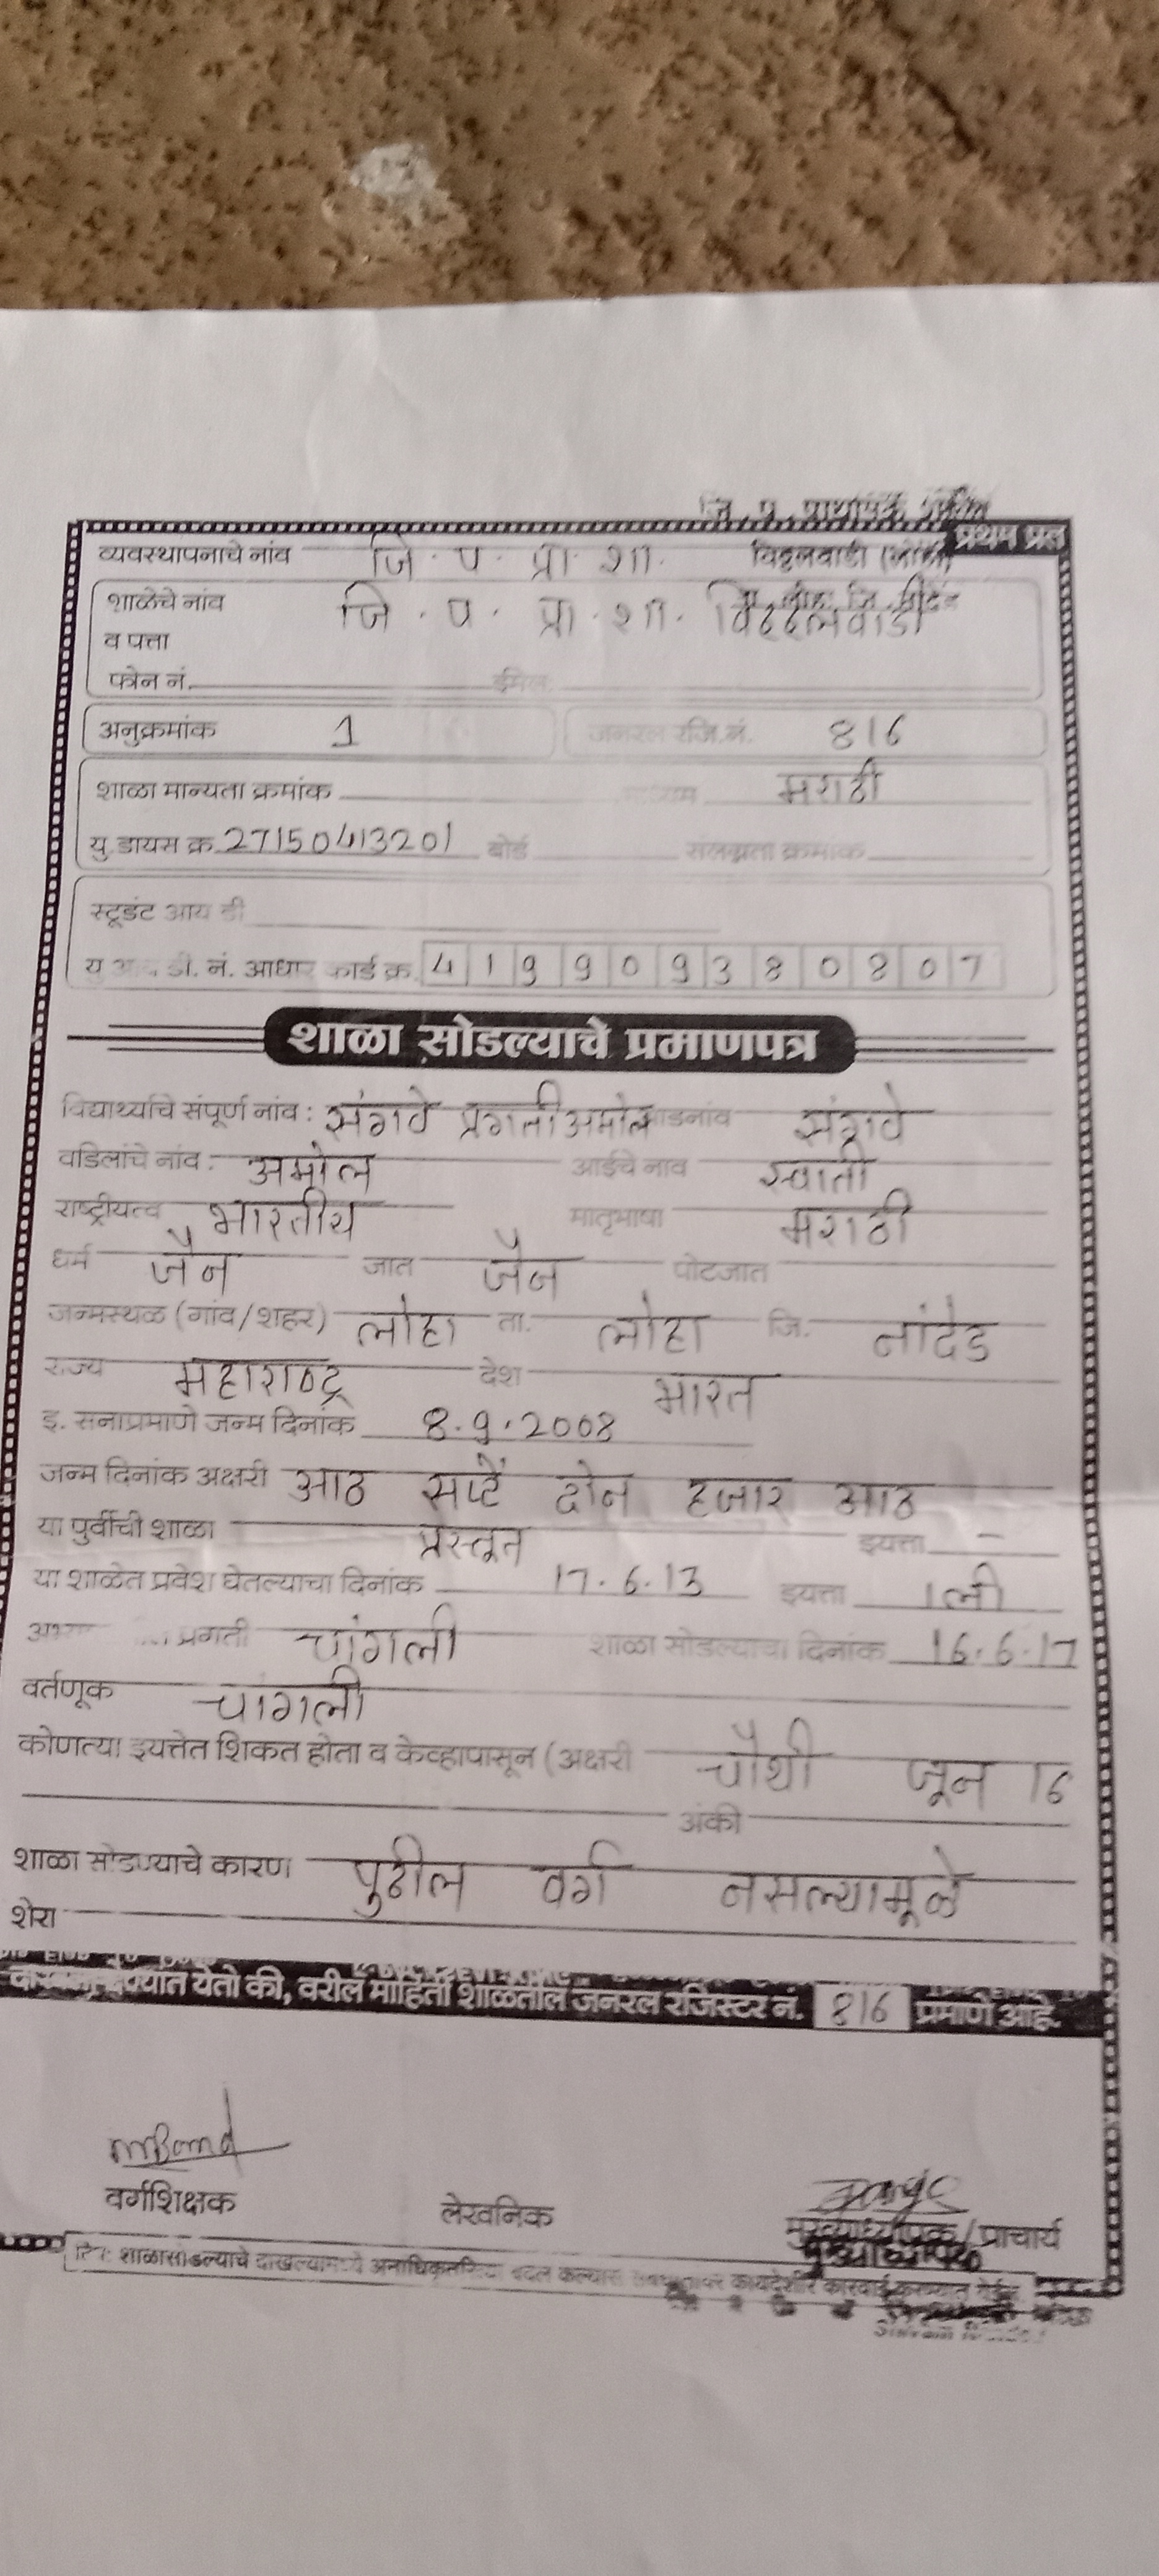 जि. प. प्राथमिक शाळा
प्रथम प्रत
व्यवस्थापनाचे नांव जि. प. प्रा. शा. विठ्ठलवाडी (लोहा)
ता. लोहा जि. नांदेड
शाळेचे नांव जि. प. प्रा. शा. विठ्ठलवाडी
व पत्ता
फोन नं. ईमेल:
अनुक्रमांक 1 जनरल रजि.नं. 816
शाळा मान्यता क्रमांक माध्यम मराठी
यु.डायस क्र. 27150413201 बोर्ड संलग्नता क्रमांक
स्टूडंट आय डी
यु आय डी. नं. आधार कार्ड क्र. 419909380807
शाळा सोडल्याचे प्रमाणपत्र
विद्यार्थ्याचे संपूर्ण नांव : संगवे प्रगती अमोल आडनांव संगवे
वडिलांचे नांव : अमोल आईचे नाव स्वाती
राष्ट्रीयत्व भारतीय मातृभाषा मराठी
धर्म जैन जात जैन पोटजात
जन्मस्थळ (गांव/शहर) लोहा ता. लोहा जि. नांदेड
राज्य महाराष्ट्र देश भारत
इ. सनाप्रमाणे जन्म दिनांक 8.9.2008
जन्म दिनांक अक्षरी आठ सप्टें दोन हजार आठ
या पुर्वीची शाळा प्रस्तूत इयत्ता -
या शाळेत प्रवेश घेतल्याचा दिनांक 17.6.13 इयत्ता 1ली
प्रगती चांगली शाळा सोडल्याचा दिनांक 16.6.17
वर्तणूक चांगली
कोणत्या इयत्तेत शिकत होता व केव्हापासून (अक्षरी चौथी जून 16
अंकी
शाळा सोडण्याचे कारण पुढील वर्ग नसल्यामूळे
शेरा
दाखला देण्यात येतो की, वरील माहिती शाळेतील जनरल रजिस्टर नं. 816 प्रमाणे आहे.
वर्गशिक्षक लेखनिक मुख्याध्यापक/प्राचार्य
मुख्याध्यापक
टिप: शाळा सोडल्याचे दाखल्यामध्ये अनाधिकृतरित्या बदल केल्यास संबंधितावर कायदेशीर कारवाई करण्यात येईल